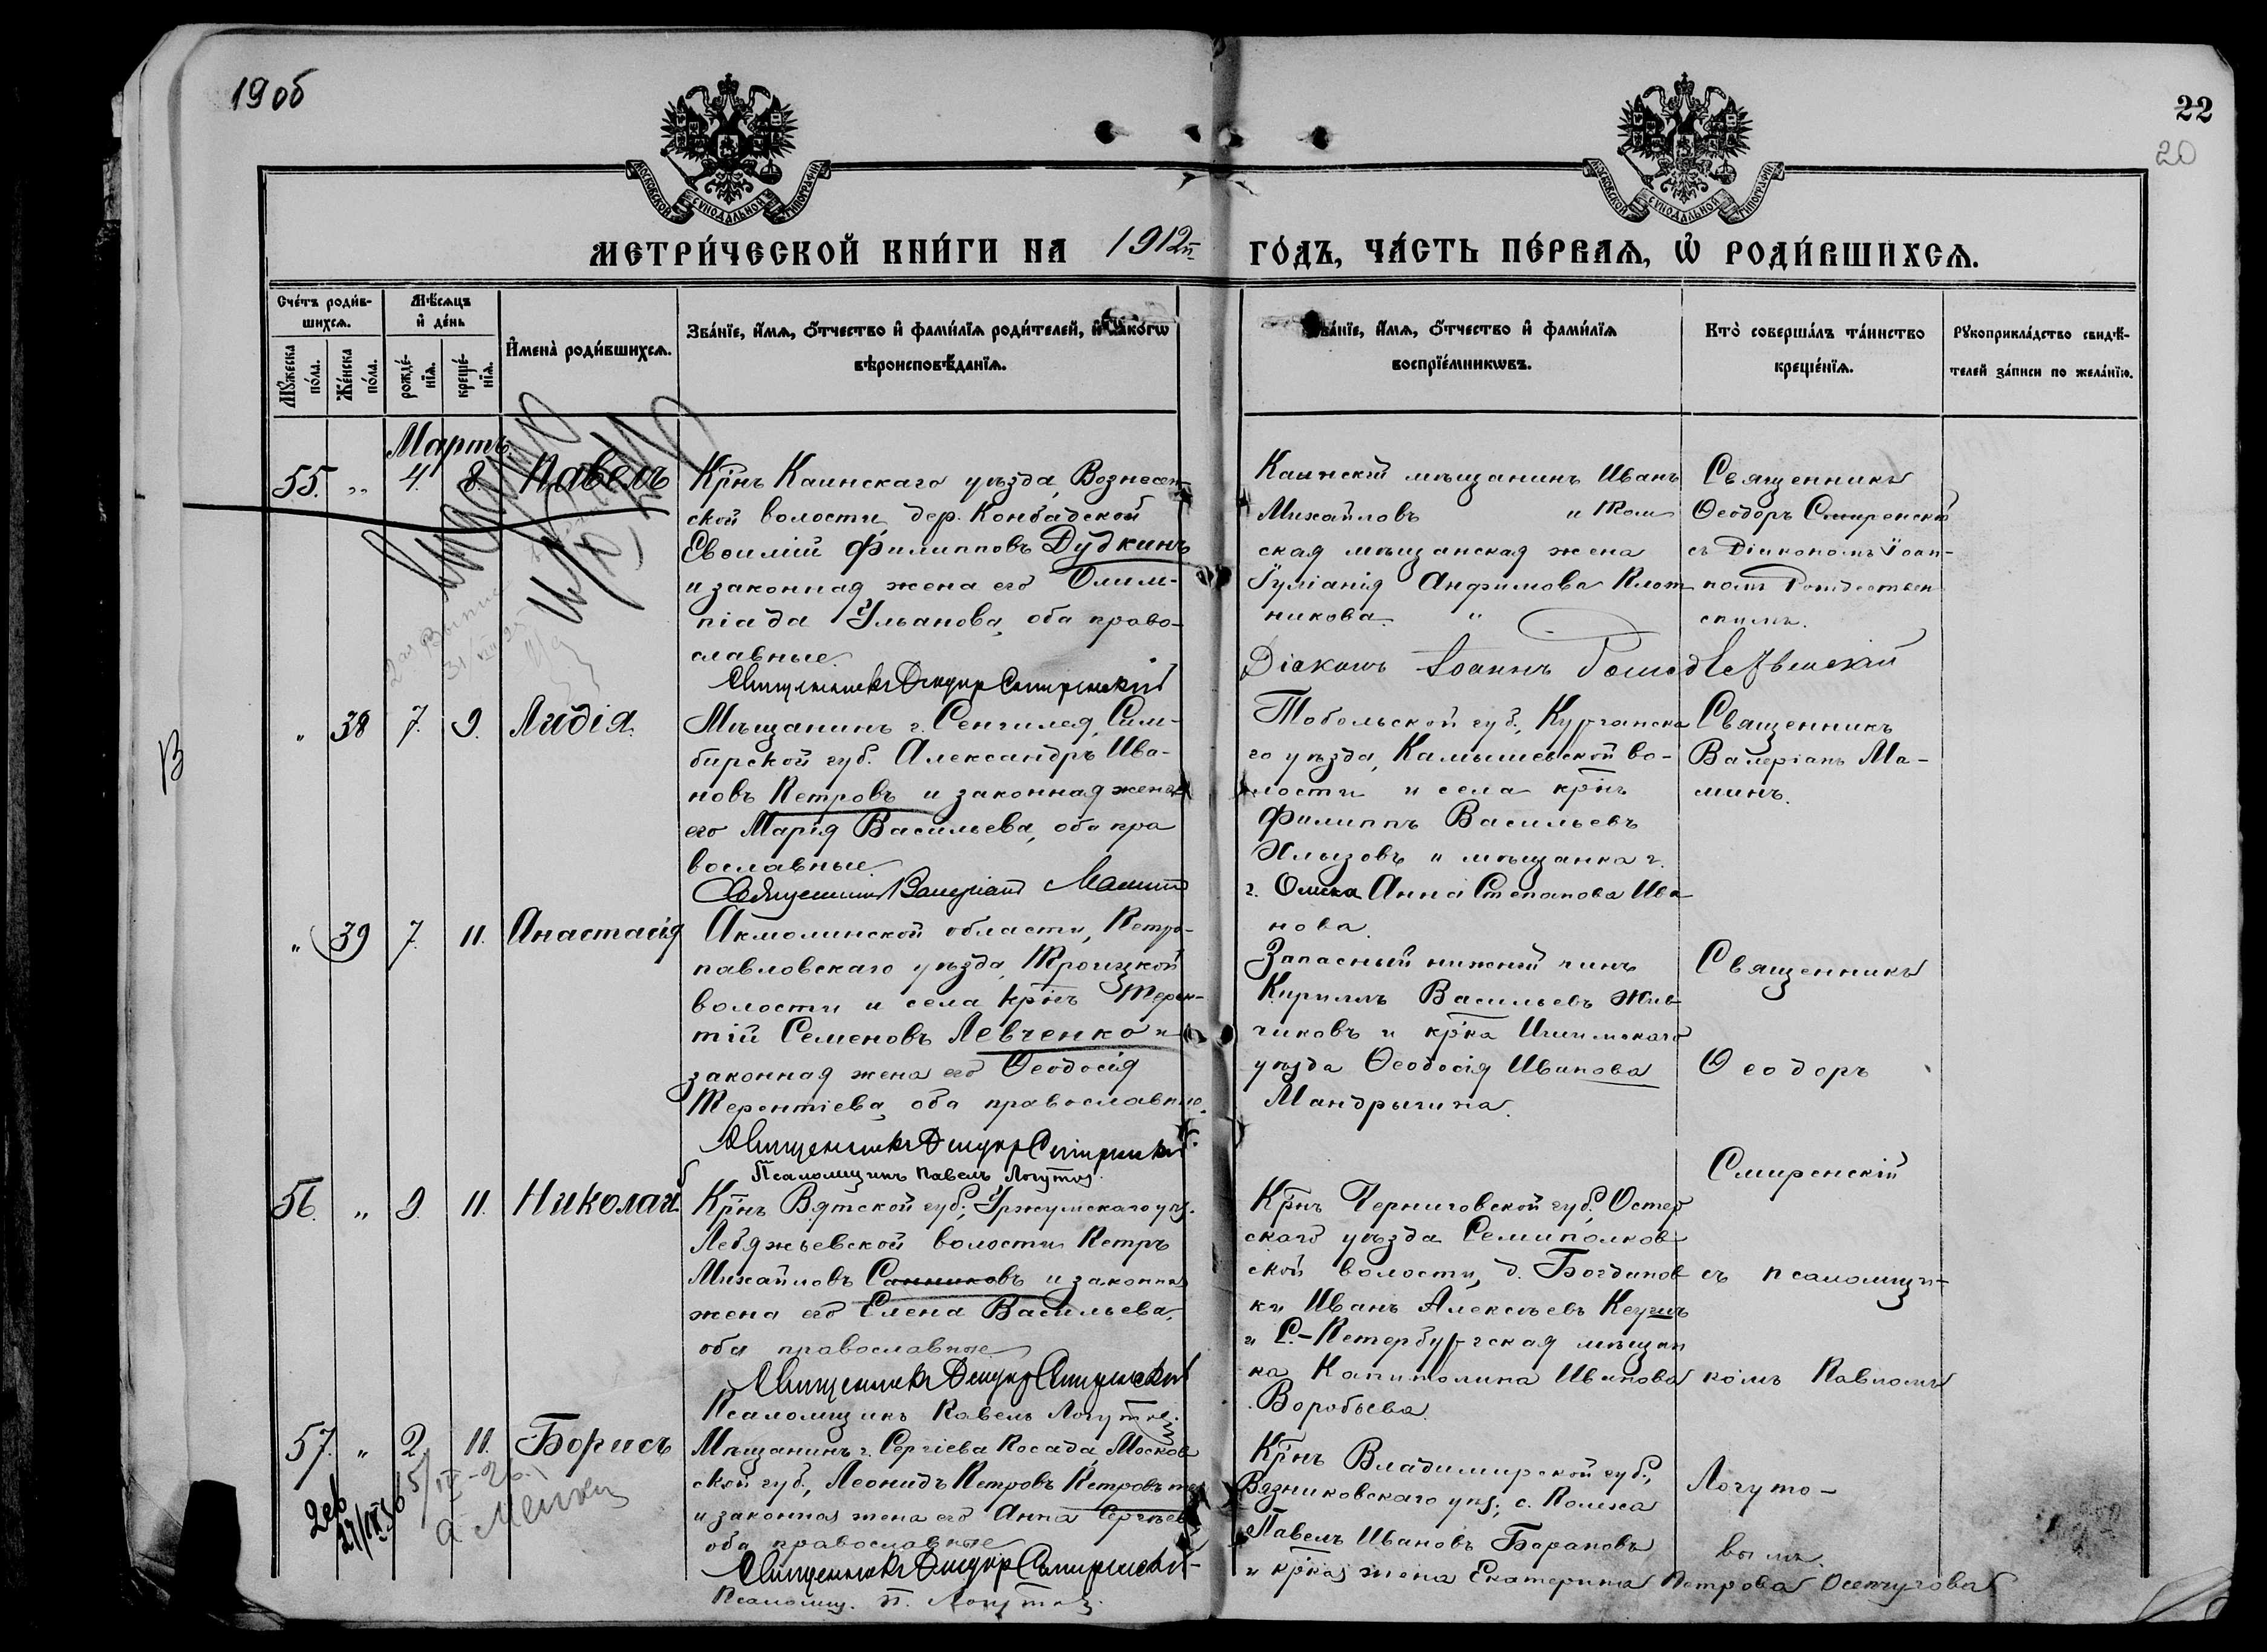 19об
22
20
МОСКОВСКОЙ СѴНОДАЛЬНОЙ ТИПОГРАФІИ
МОСКОВСКОЙ СѴНОДАЛЬНОЙ ТИПОГРАФІИ
МЕТРИ́ЧЕСКОЙ КНИ́ГИ НА 1912й ГО́ДЪ, ЧА́СТЬ ПЕ́РВАѦ, Ѿ РОДИ́ВШИХСѦ.
Сче́тъ роди́в-
шихсѧ.
Мꙋ́жеска по́ла.
Же́нска по́ла.
Мѣ́сѧцъ
и҆ де́нь
рожде́-
нїѧ.
креще́-
нїѧ.
И҆мена̀ роди́вшихсѧ.
Зва́нїе, и҆́мѧ, ѻ҆́тчество и҆ фами́лїѧ роди́телей, и҆ како́гѡ
вѣроисповѣ́данїѧ.
Зва́нїе, и҆́мѧ, ѻ҆́тчество и҆ фами́лїѧ
воспрїе́мникѡвъ.
Кто̀ соверша́лъ та́инство
креще́нїѧ.
Рꙋкоприкла́дство свидѣ́-
телей за́писи по жела́нїю.
Мартъ
55. „ 4. 8. Павелъ
Крнъ Каинскаго уѣзда, Вознесен-
ской волости, дер. Конбадской
Евѳимій Филипповъ Дудкинъ
и законная жена его Олим-
піада Ульанова, оба право-
славные.
Священникъ Ѳеодоръ Смиренский
Каинскій мѣщанинъ Иванъ
Михайловъ и Том
ская мѣщанская жена
Іуліанія Анфимова Плот
никова.
Діаконъ Іоаннъ Рождественскій
Священникъ
Ѳеодоръ Смиренскій
съ Діакономъ Іоан-
номъ Рождествен
скимъ.
„ 38 7. 9. Лидія.
Мѣщанинъ г. Сенгилея, Сим-
бирской губ. Александръ Ива-
новъ Петровъ и законная жена
его Марія Васильева, оба пра
вославные.
Священникъ Валеріанъ Маминъ
Тобольской губ., Курганска
го уѣзда, Камышевской во-
лости и села крнъ
Филиппъ Васильевъ
Хлызовъ и мѣщанка г.
г. Омска Анна Степанова Ива
нова.
Священникъ
Валеріанъ Ма-
минъ.
В
„ 39 7. 11. Анастасія
Акмолинской области, Петро-
павловскаго уѣзда, Троицкой
волости и села крнъ Терен-
тій Семеновъ Левченко и
законная жена его Ѳеодосія
Терентіева, оба православные.
Священникъ Ѳеодоръ Смиренский
Псаломщикъ Павелъ Логутов
Запасный нижній чинъ
Кирилъ Васильевъ Жив
чиковъ и крка Ишимскаго
уѣзда Ѳеодосія Иванова
Мандрыгина.
Священникъ
Ѳеодоръ
Смиренскій
56. „ 9. 11. Николай.
Крнъ Вятской губ., Уржумскаго уѣз.
Лебяжьевской волости Петръ
Михайловъ Санниковъ и законная
жена его Елена Васильева,
оба православные
Священникъ Ѳеодоръ Смиренский
Псаломщикъ Павелъ Логутов.
Крнъ Черниговской губ., Остер
скаго уѣзда Семиполков
ской волости, д. Богданов
ки Иванъ Алексѣевъ
и С.-Петербургская мѣщан
ка Капитолина Иванова
Воробьева.
съ псаломщи-
комъ Павломъ
57. „ 2. 11. Борисъ
Мѣщанинъ г. Сергіева Посада, Москов
ской губ., Леонидъ Петровъ Петровъ
и законная жена его Анна Сергѣева
оба православные
Священникъ Ѳеодоръ Смиренский
Псаломщ. П. Логутов.
Крнъ Владимирской губ.,
Вязниковскаго уѣз., с. Холуя
Павелъ Ивановъ Барановъ
и крка жена Екатерина Петрова
Логуто-
вымъ.